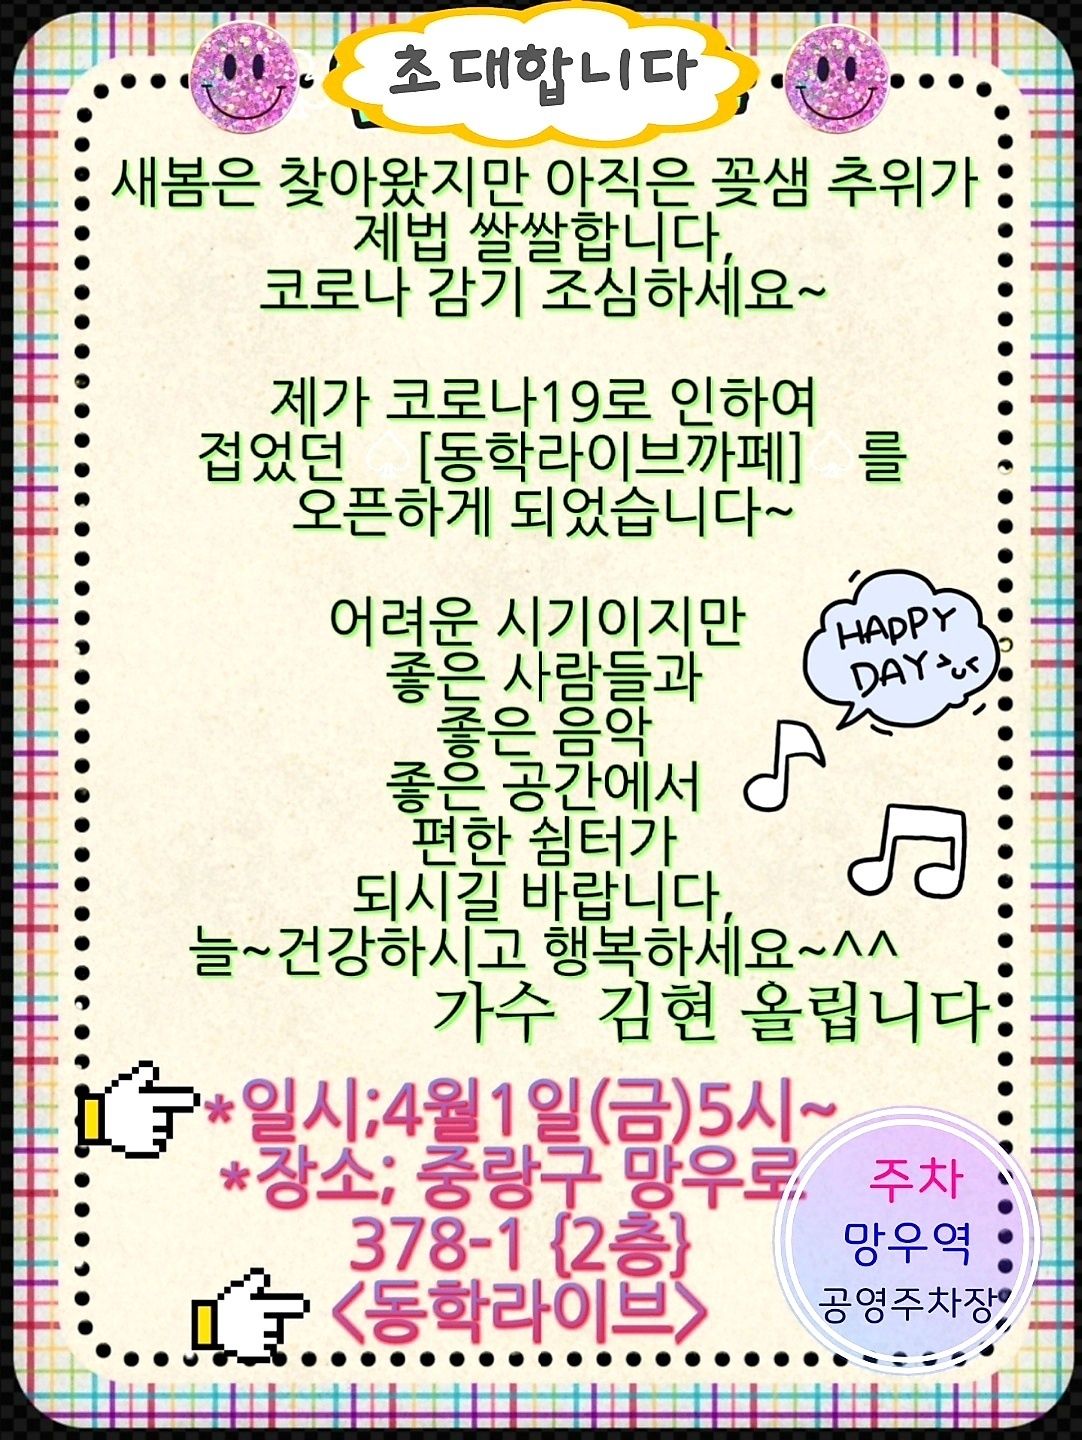 초대합니다
새봄은 찾아왔지만 아직은 꽃샘 추위가
제법 쌀쌀합니다,
코로나 감기 조심하세요~
제가 코로나19로 인하여
접었던 ♤[동학라이브까페]♤를
오픈하게 되었습니다~
어려운 시기이지만
좋은 사람들과
좋은 음악
좋은 공간에서
편한 쉼터가
되시길 바랍니다,
늘~건강하시고 행복하세요~^^
가수 김현 올립니다
HAPPY
DAY
*일시;4월1일(금)5시~
*장소; 중랑구 망우로
378-1 {2층}
<동학라이브>
주차
망우역
공영주차장